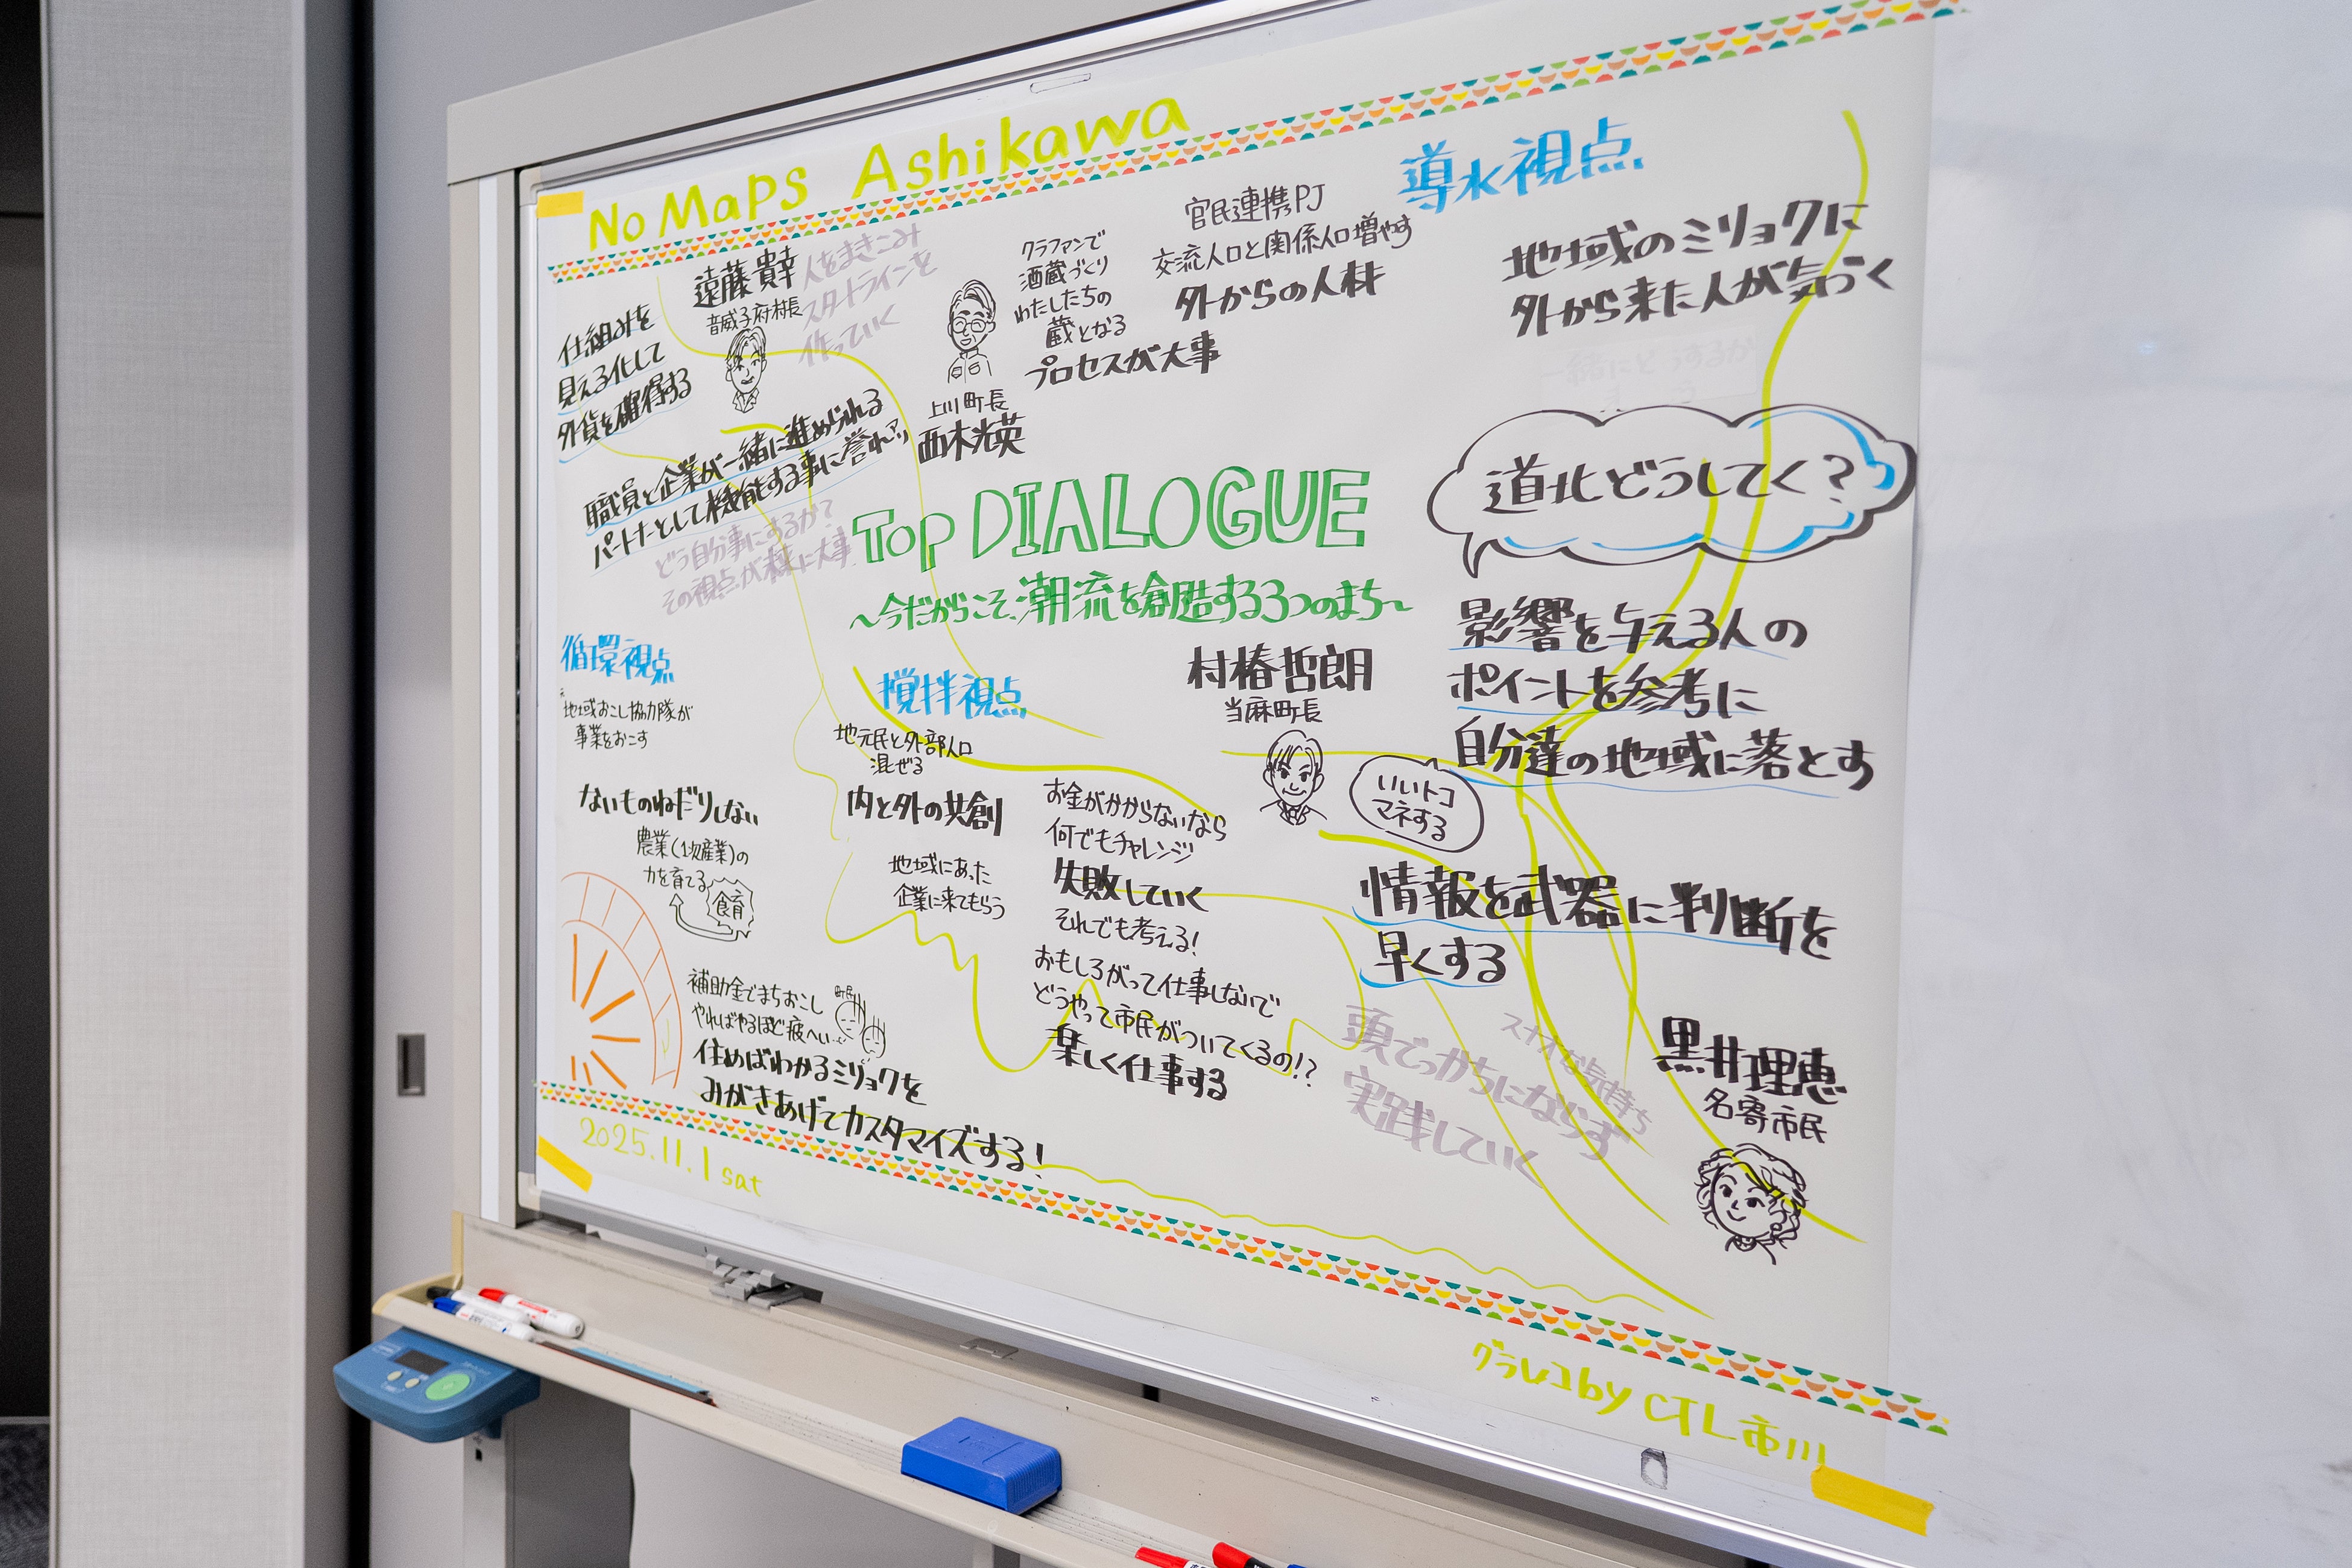 No Maps Ashikawa
遠藤貴幸
音威子府村長
仕組みを
見える化して
外貨を確得する
人をまきこみ
スタートラインを
作っていく
職員と企業が一緒に進められる
パートナーとして機能する事に誉れアリ
どう自分事にするか?
その視点が未来に大事
クラファンで
酒蔵づくり
わたしたちの
蔵となる
プロセスが大事
上川町長
西木光英
官民連携PJ
交流人口と関係人口増やす
外からの人材
導水視点
地域のミリョクに
外から来た人が気づく
道北どうしてく?
Top DIALOGUE
〜今だからこそ、潮流を創造する3つのまち〜
影響を与える人の
ポイントを参考に
自分達の地域に落とす
循環視点
地域おこし協力隊が
事業をおこす
ないものねだりしない
農業(1次産業)の
力を育てる
食育
補助金でまちおこし
やればやるほど疲へい…
町民
住めばわかるミリョクを
みがきあげてカスタマイズする!
撹拌視点
地元民と外部人口
混ぜる
内と外の共創
地域にあった
企業に来てもらう
村椿哲朗
当麻町長
いいトコ
マネする
お金がかからないなら
何でもチャレンジ
失敗していく
それでも考える!
おもしろがって仕事しないで
どうやって市民がついてくるの!?
楽しく仕事する
情報を武器に判断を
早くする
頭でっかちにならず
実践していく
スナオな気持ち
黒井理恵
名寄市民
2025.11.1 sat
グラレコ by CTL市川